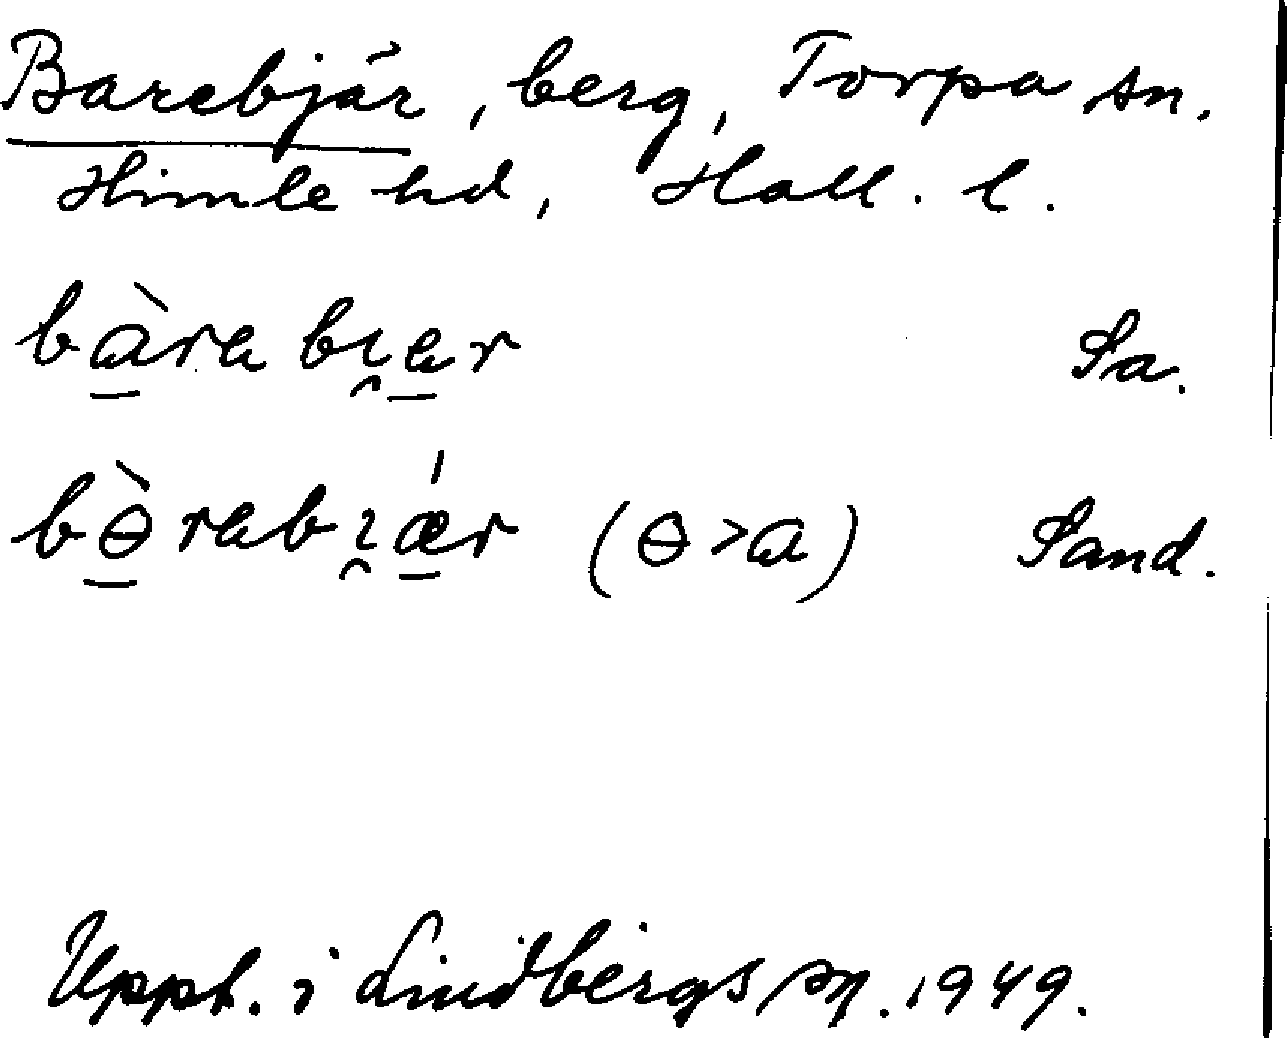 Barebjär, berg, Torpa sn.
Himle hd, Hall. l.
bàrabɪ̯ar Sa.
bɵ̀rabɪ̯ǽr (ɵ>a) Sand.
Uppt. i Lindbergs 1949.